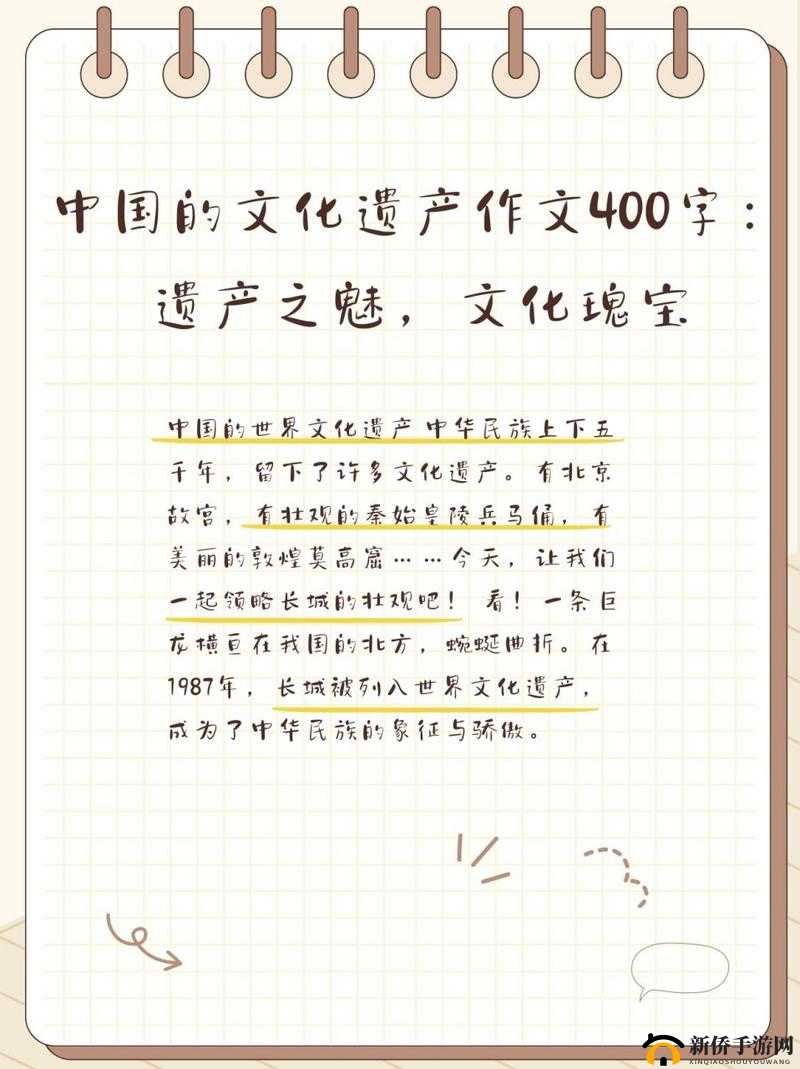 中国的文化遗产作文400字：
遗产之魅，文化瑰宝
中国的世界文化遗产 中华民族上下五
千年，留下了许多文化遗产。有北京
故宫，有壮观的秦始皇陵兵马俑，有
美丽的敦煌莫高窟……今天，让我们
一起领略长城的壮观吧！ 看！一条巨
龙横亘在我国的北方，蜿蜒曲折。在
1987年，长城被列入世界文化遗产，
成为了中华民族的象征与骄傲。
新侨手游网
XINQIAOSHOUYOUWANG